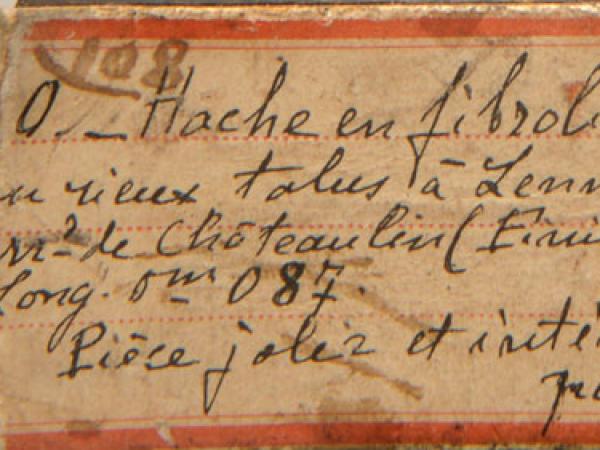 108
0. _ Hache en fibrol
u vieux talus à Lenn
arr.t de Châteaulin (Fini
Long. 0m 087.
Pièce jolie et inté